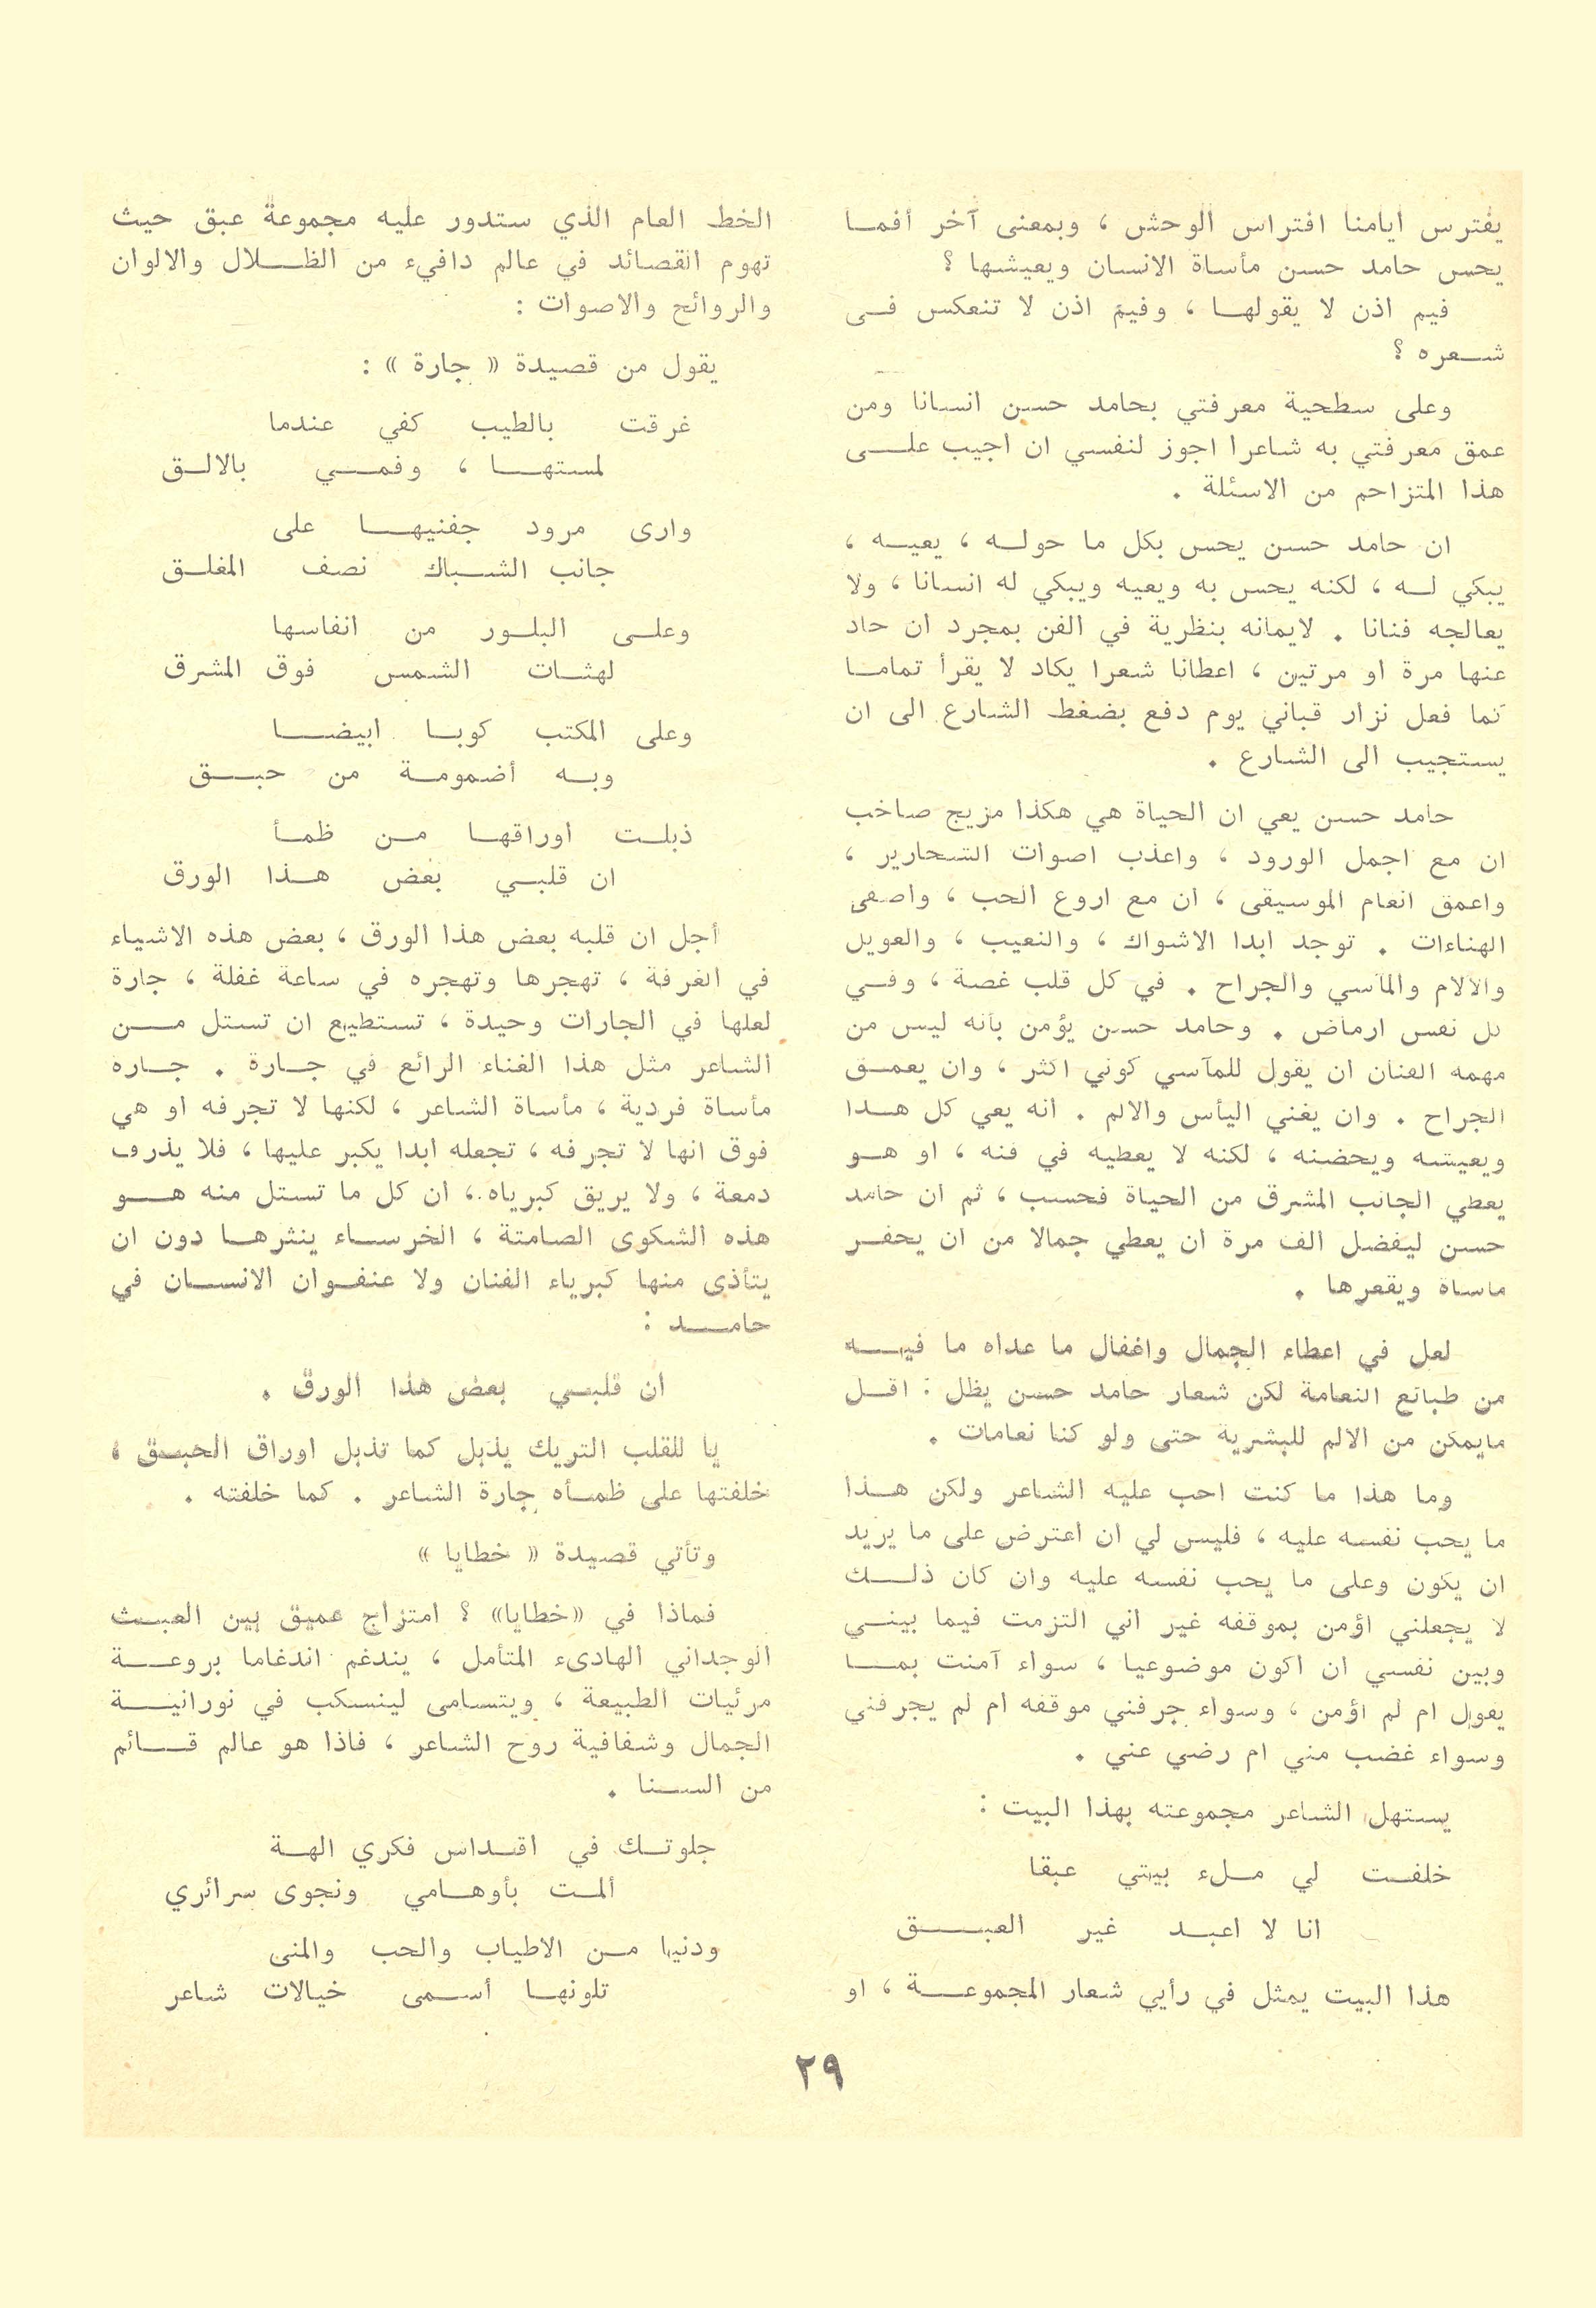 يفترس ايامنا افتراس الوحش ، وبمعنى آخر أفما
يحس حامد حسن مأساة الانسان ويعيشها ؟
فيم اذن لا يقولها ، وفيم اذن لا تنعكس فى
شعره ؟
وعلى سطحية معرفتي بحامد حسن انسانا ومن
عمق معرفتي به شاعرا اجوز لنفسي ان اجيب على
هذا المتزاحم من الاسئلة .
ان حامد حسن يحس بكل ما حوله ، يعيه ،
يبكي له ، لكنه يحس به ويعيه ويبكي له انسانا ، ولا
يعالجه فنانا . لايمانه بنظرية في الفن بمجرد ان حاد
عنها مرة او مرتين ، اعطانا شعرا يكاد لا يقرأ تماما
كما فعل نزار قباني يوم دفع بضغط الشارع الى ان
يستجيب الى الشارع .
حامد حسن يعي ان الحياة هي هكذا مزيج صاخب
ان مع اجمل الورود ، واعذب اصوات الشحارير ،
واعمق انغام الموسيقى ، ان مع اروع الحب ، واصفى
الهناءات . توجد ابدا الاشواك ، والنعيب ، والعويل
والآلام والمآسي والجراح . في كل قلب غصة ، وفي
كل نفس ارماض . وحامد حسن يؤمن بأنه ليس من
مهمه الفنان ان يقول للمآسي كوني اكثر ، وان يعمق
الجراح . وان يغني اليأس والالم . انه يعي كل هذا
ويعيشه ويحضنه ، لكنه لا يعطيه في فنه ، او هو
يعطي الجانب المشرق من الحياة فحسب ، ثم ان حامد
حسن ليفضل الف مرة ان يعطي جمالا من ان يحفر
مأساة ويقعرها .
لعل في اعطاء الجمال واغفال ما عداه ما فيه
من طبائع النعامة لكن شعار حامد حسن يظل : اقل
مايمكن من الالم للبشرية حتى ولو كنا نعامات .
وما هذا ما كنت احب عليه الشاعر ولكن هذا
ما يحب نفسه عليه ، فليس لي ان اعترض على ما يريد
ان يكون وعلى ما يحب نفسه عليه وان كان ذلك
لا يجعلني اؤمن بموقفه غير اني التزمت فيما بيني
وبين نفسي ان اكون موضوعيا ، سواء آمنت بما
يقول ام لم اؤمن ، وسواء جرفني موقفه ام لم يجرفني
وسواء غضب مني ام رضي عني .
يستهل الشاعر مجموعته بهذا البيت :
خلفت لي ملء بيتي عبقا
انا لا اعبد غير العبق
هذا البيت يمثل في رأيي شعار المجموعة ، او
الخط العام الذي ستدور عليه مجموعة عبق حيث
تهوم القصائد في عالم دافيء من الظلال والالوان
والروائح والاصوات :
يقول من قصيدة « جارة » :
غرقت بالطيب كفي عندما
لمستها ، وفمي بالالق
وارى مرود جفنيها على
جانب الشباك نصف المغلق
وعلى البلور من انفاسها
لهثات الشمس فوق المشرق
وعلى المكتب كوبا ابيضا
وبه أضمومة من حبق
ذبلت اوراقها من ظمأ
ان قلبي بعض هذا الورق
أجل ان قلبه بعض هذا الورق ، بعض هذه الاشياء
في الغرفة ، تهجرها وتهجره في ساعة غفلة ، جارة
لعلها في الجارات وحيدة ، تستطيع ان تستل من
الشاعر مثل هذا الغناء الرائع في جارة . جارة
مأساة فردية ، مأساة الشاعر ، لكنها لا تجرفه او هي
فوق انها لا تجرفه ، تجعله ابدا يكبر عليها ، فلا يذرف
دمعة ، ولا يريق كبرياه ، ان كل ما تستل منه هو
هذه الشكوى الصامتة ، الخرساء ينثرها دون ان
يتأذى منها كبرياء الفنان ولا عنفوان الانسان في
حامد :
ان قلبي بعض هذا الورق .
يا للقلب التريك يذبل كما تذبل اوراق الحبق ،
خلفتها على ظمأه جارة الشاعر . كما خلفته .
وتأتي قصيدة « خطايا »
فماذا في «خطايا» ؟ امتزاج عميق بين العبث
الوجداني الهادىء المتأمل ، يندغم اندغاما بروعة
مرئيات الطبيعة ، ويتسامى لينسكب في نورانية
الجمال وشفافية روح الشاعر ، فاذا هو عالم قائم
من السنا .
جلوتك في اقداس فكري الهة
ألمت بأوهامي ونجوى سرائري
ودنيا من الاطياب والحب والمنى
تلونها أسمى خيالات شاعر
٢٩